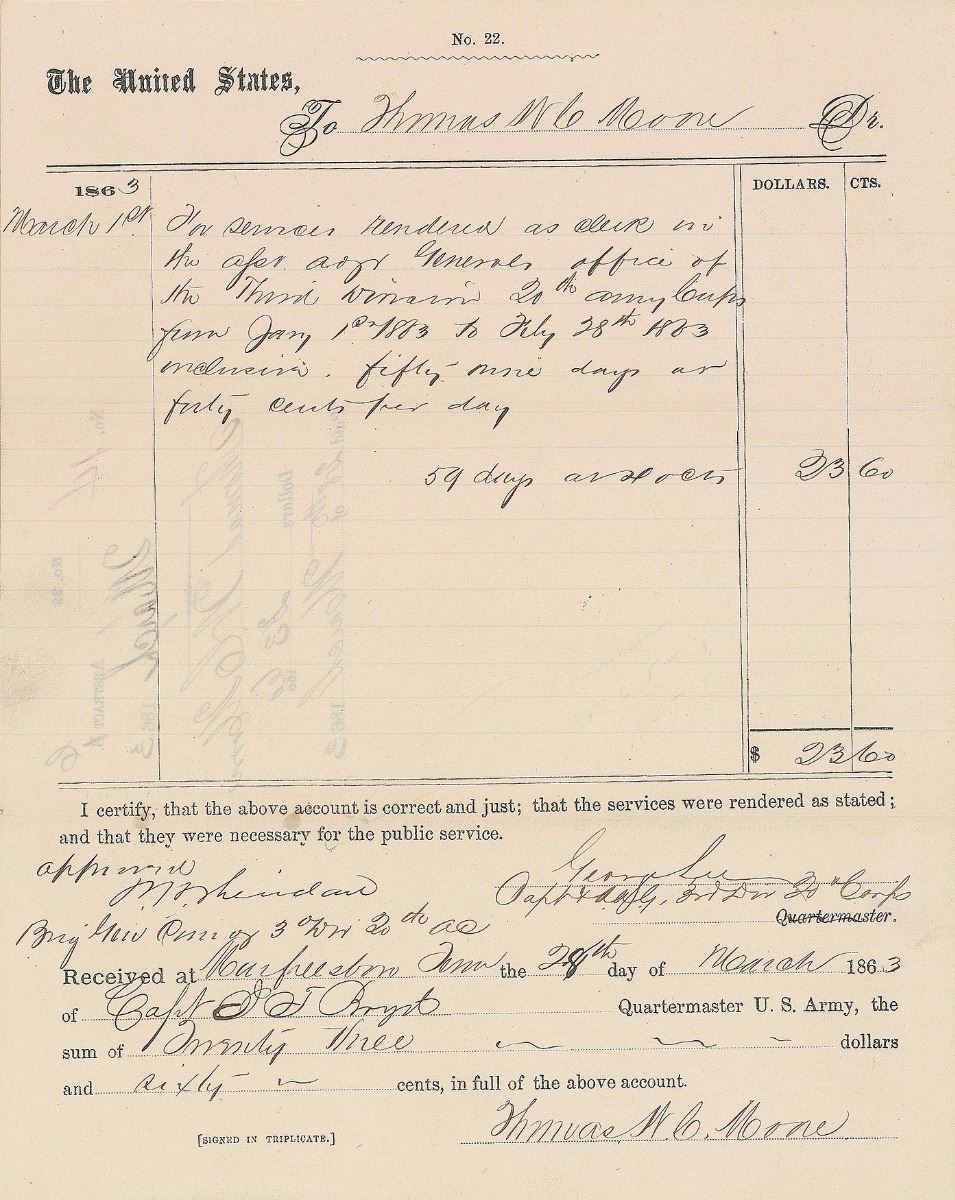 No. 22.
The United States,
To Thomas W C Moore Dr.
1863 DOLLARS. CTS.
March 1st For services rendered as clerk in
the asst. adjt Generals office of
the Third Division 20th army Corps
from Jany 1st 1863 to Feby 28th 1863
inclusive. fifty nine days at
forty cents per day
59 days at 40 cts 23 60
$ 23 60
I certify, that the above account is correct and just; that the services were rendered as stated;
and that they were necessary for the public service.
approved
P H Sheridan
George Lee
Capt & A.A.G. 3rd Div 20th Corps
Brig Gen Com'g 3d Div 20th AC
Quartermaster.
Received at Murfreesboro Tenn the 28th day of March 1863
of Capt Boyd Quartermaster U. S. Army, the
sum of Twenty Three dollars
and sixty cents, in full of the above account.
[SIGNED IN TRIPLICATE.] Thomas W. C. Moore